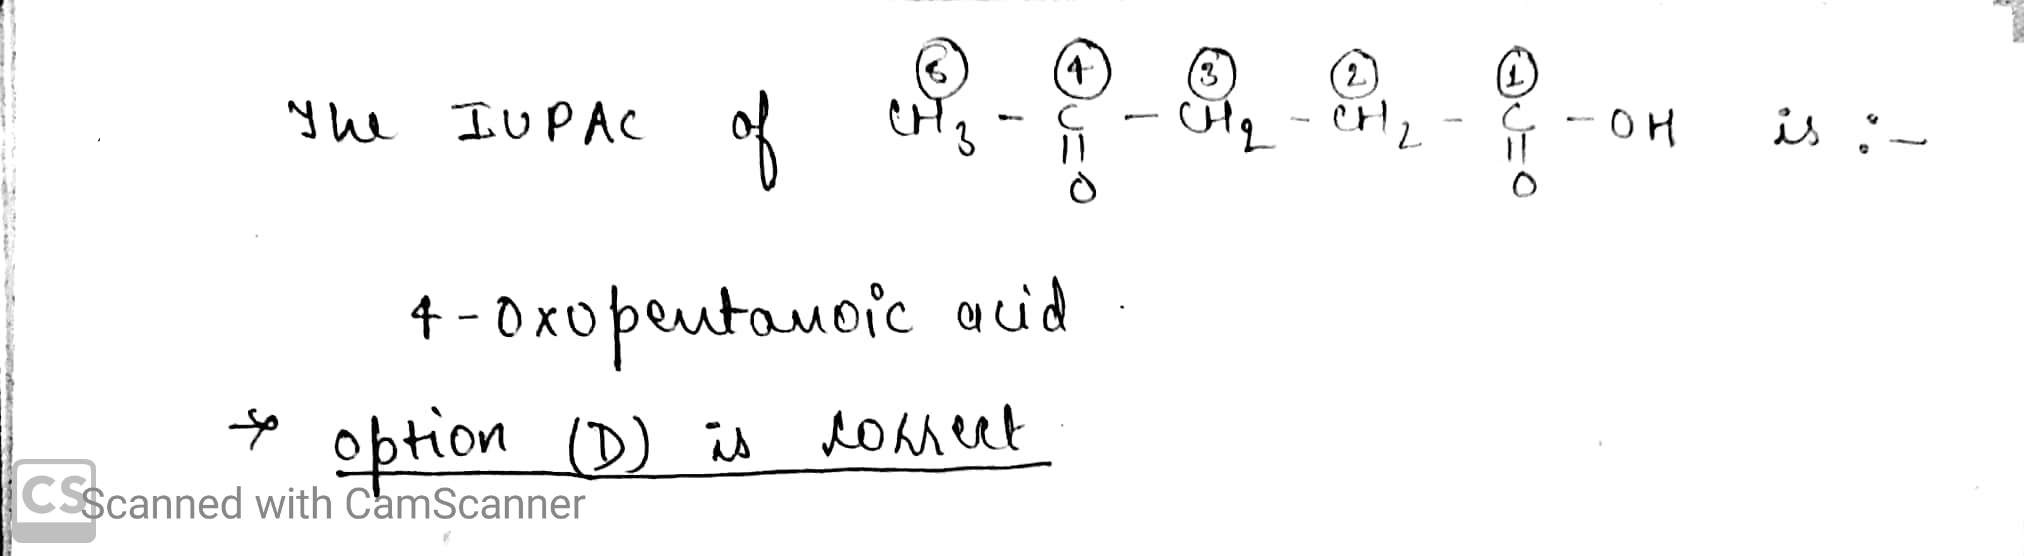 ⑤ ④ ③ ② ①
The IUPAC of CH3 - C - CH2 - CH2 - C - OH is :-
|| ||
O O
4-Oxopentanoic acid
→ option (D) is correct
CS Scanned with CamScanner